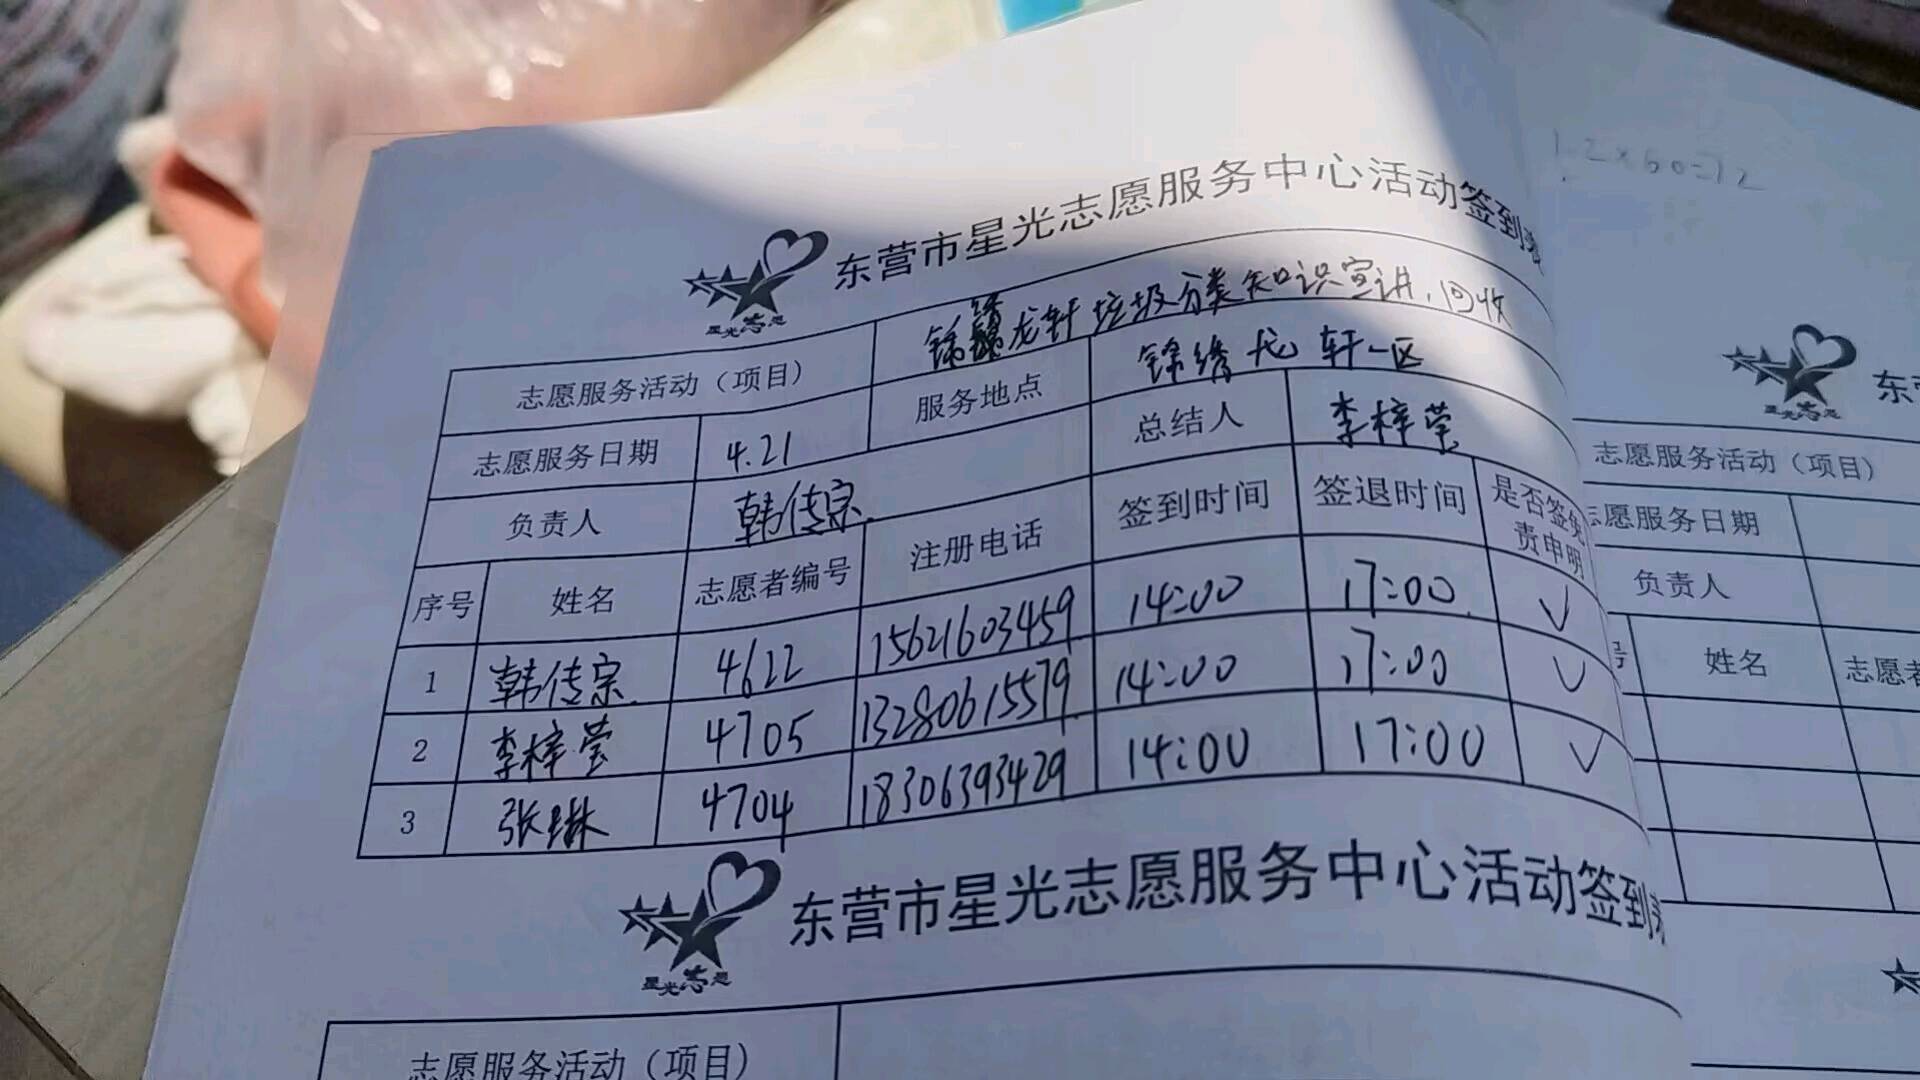 1.2×60=72
东营市星光志愿服务中心活动签到表
星光志愿
志愿服务活动（项目） 锦绣龙轩垃圾分类知识宣讲,回收
志愿服务日期 4.21 服务地点 锦绣龙轩一区
负责人 韩传宗 总结人 李梓莹
序号 姓名 志愿者编号 注册电话 签到时间 签退时间 是否签免责申明
1 韩传宗 4622 15621603459 14:00 17:00 √
2 李梓莹 4705 13280615579 14:00 17:00 √
3 张琳 4704 18306393429 14:00 17:00 √
东营市星光志愿服务中心活动签到表
星光志愿
志愿服务活动（项目）
星光志愿
东营
志愿服务活动（项目）
志愿服务日期
负责人
号 姓名 志愿者